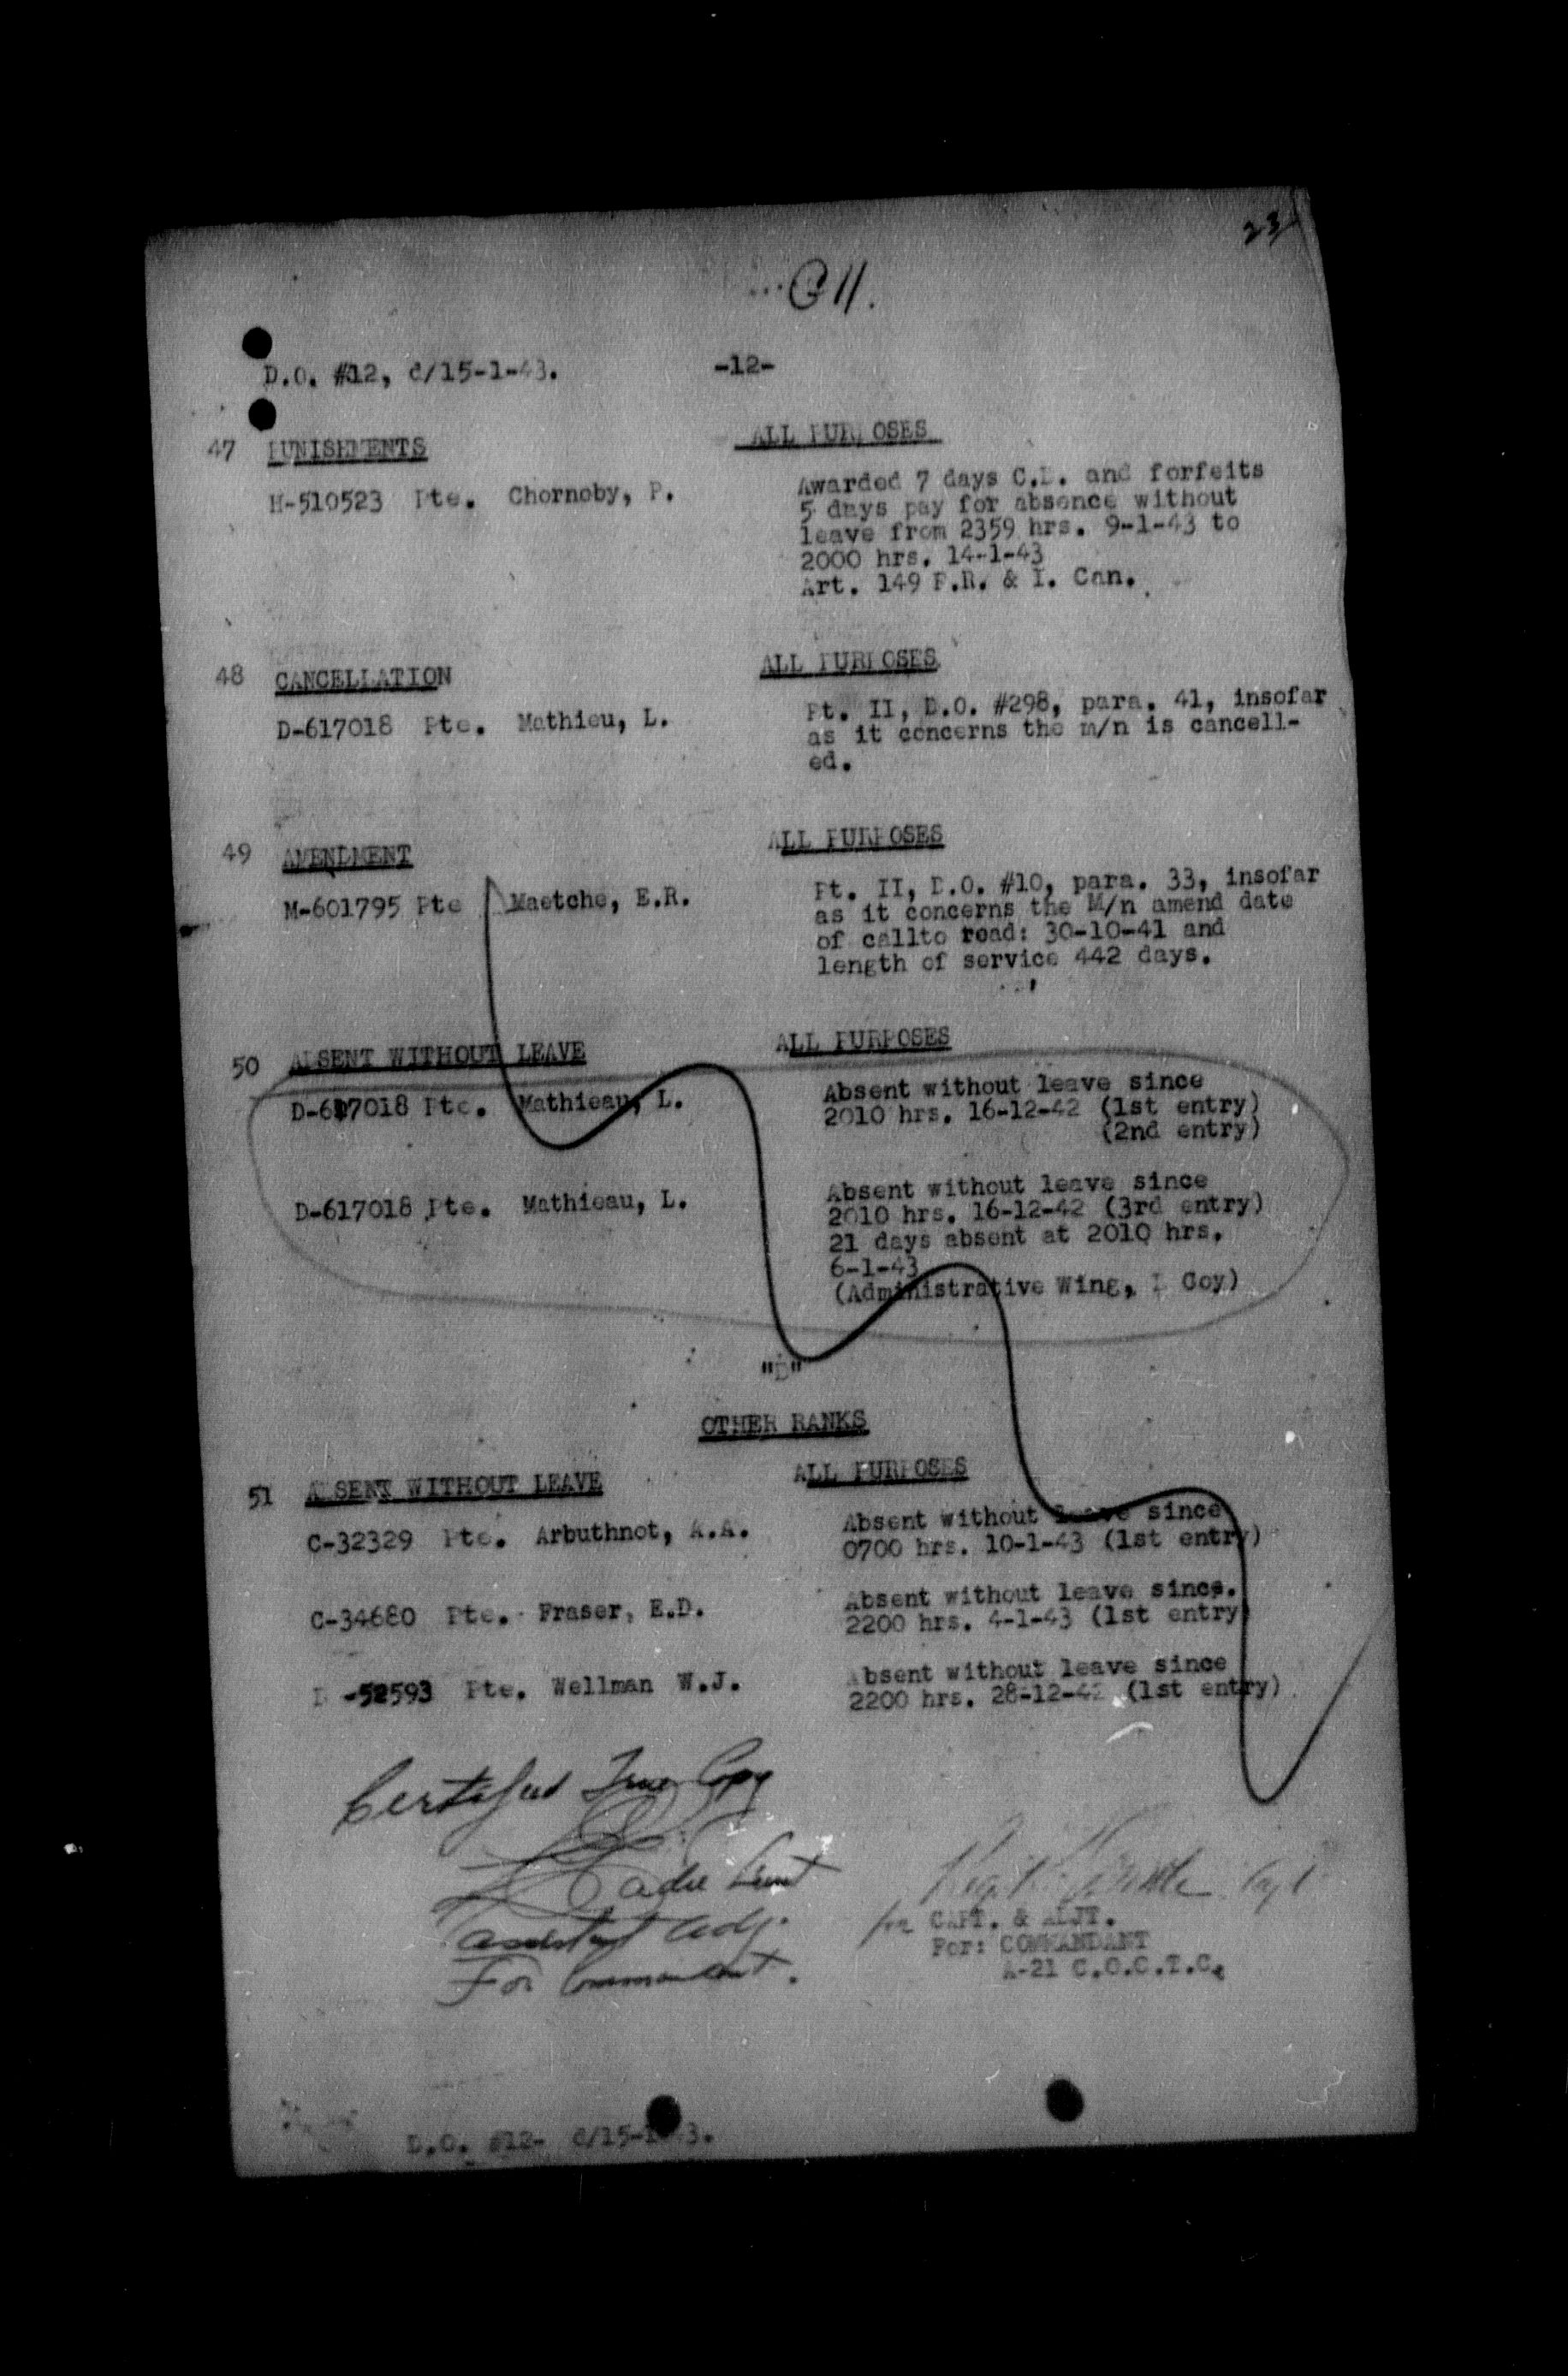 23
C 11.
D.O. #12, d/15-1-43. -12-
47 PUNISHMENTS ALL PURPOSES
H-510523 Pte. Chornoby, P. Awarded 7 days C.B. and forfeits
5 days pay for absence without
leave from 2359 hrs. 9-1-43 to
2000 hrs. 14-1-43
Art. 149 F.R. & I. Can.
48 CANCELLATION ALL PURPOSES
D-617018 Pte. Mathieu, L. Pt. II, D.O. #298, para. 41, insofar
as it concerns the m/n is cancell-
ed.
49 AMENDMENT ALL PURPOSES
M-601795 Pte Maetche, E.R. Pt. II, D.O. #10, para. 33, insofar
as it concerns the M/n amend date
of callto read: 30-10-41 and
length of service 442 days.
50 ABSENT WITHOUT LEAVE ALL PURPOSES
D-617018 Pte. Mathieau, L. Absent without leave since
2010 hrs. 16-12-42 (1st entry)
(2nd entry)
D-617018 Pte. Mathieau, L. Absent without leave since
2010 hrs. 16-12-42 (3rd entry)
21 days absent at 2010 hrs.
6-1-43
(Administrative Wing, Coy)
"D"
OTHER RANKS
51 ABSENT WITHOUT LEAVE ALL PURPOSES
C-32329 Pte. Arbuthnot, A.A. Absent without leave since
0700 hrs. 10-1-43 (1st entry)
C-34680 Pte. Fraser, E.D. Absent without leave since.
2200 hrs. 4-1-43 (1st entry)
-52593 Pte. Wellman W.J. Absent without leave since
2200 hrs. 28-12-42 (1st entry)
Certified True Copy
Lieut
Assistant Adj.
For Commandant.
for CAPT. & ADJT.
For: COMMANDANT
A-21 C.O.C.T.C.
D.O. #12- d/15-1-43.